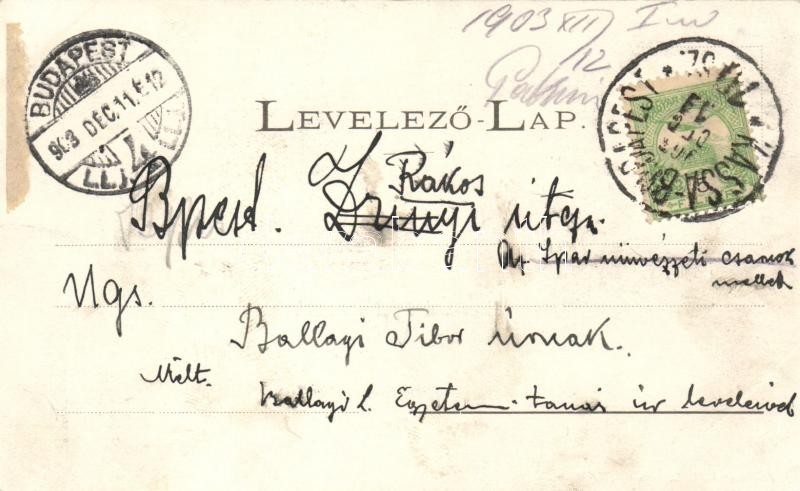 1903 XII
12
BUDAPEST
903 DEC. 11. É. 12
LEVELEZŐ-LAP.
KASSA-BUDAPEST
Rákos
Bpest. Zrinyi utcza
Az Ipar művészeti csarnok
mellett
Ngs.
Ballagi Tibor úrnak.
Mélt.
Ballagi Egyetem. tanár úr levelével